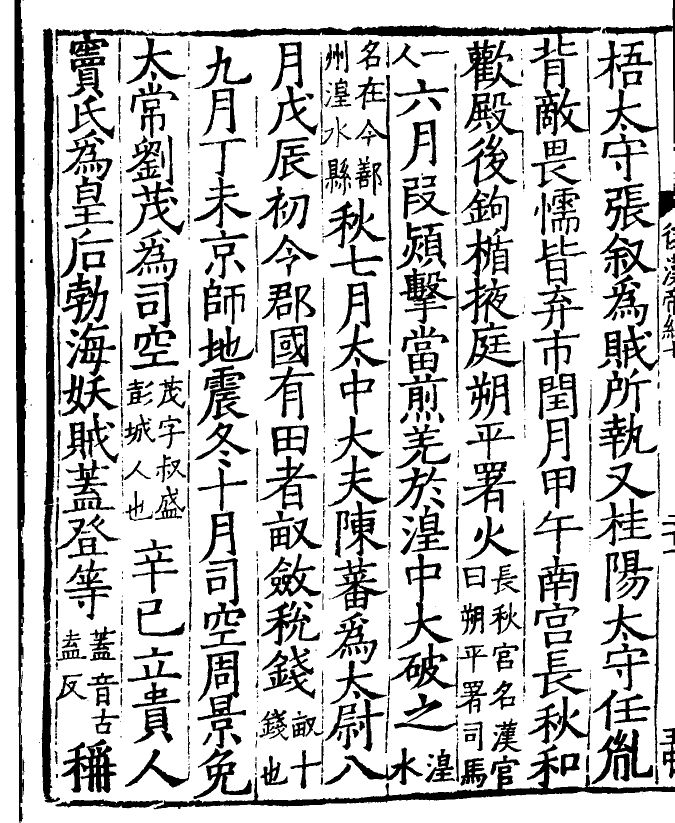 梧太守張叙爲賊所執又桂陽太守任胤
背敵畏懦皆弃市閏月甲午南宫長秋和
歡殿後鉤楯掖庭朔平署火長秋官名漢官曰朔平署司馬
一人六月段熲擊當煎羌於湟中大破之湟水
名在今鄯州湟水縣秋七月太中大夫陳蕃爲太尉八
月戊辰初令郡國有田者畝斂稅錢畝十錢也
九月丁未京師地震冬十月司空周景免
太常劉茂爲司空茂字叔盛彭城人也辛巳立貴人
竇氏爲皇后勃海妖賊蓋登等蓋音古盍反稱